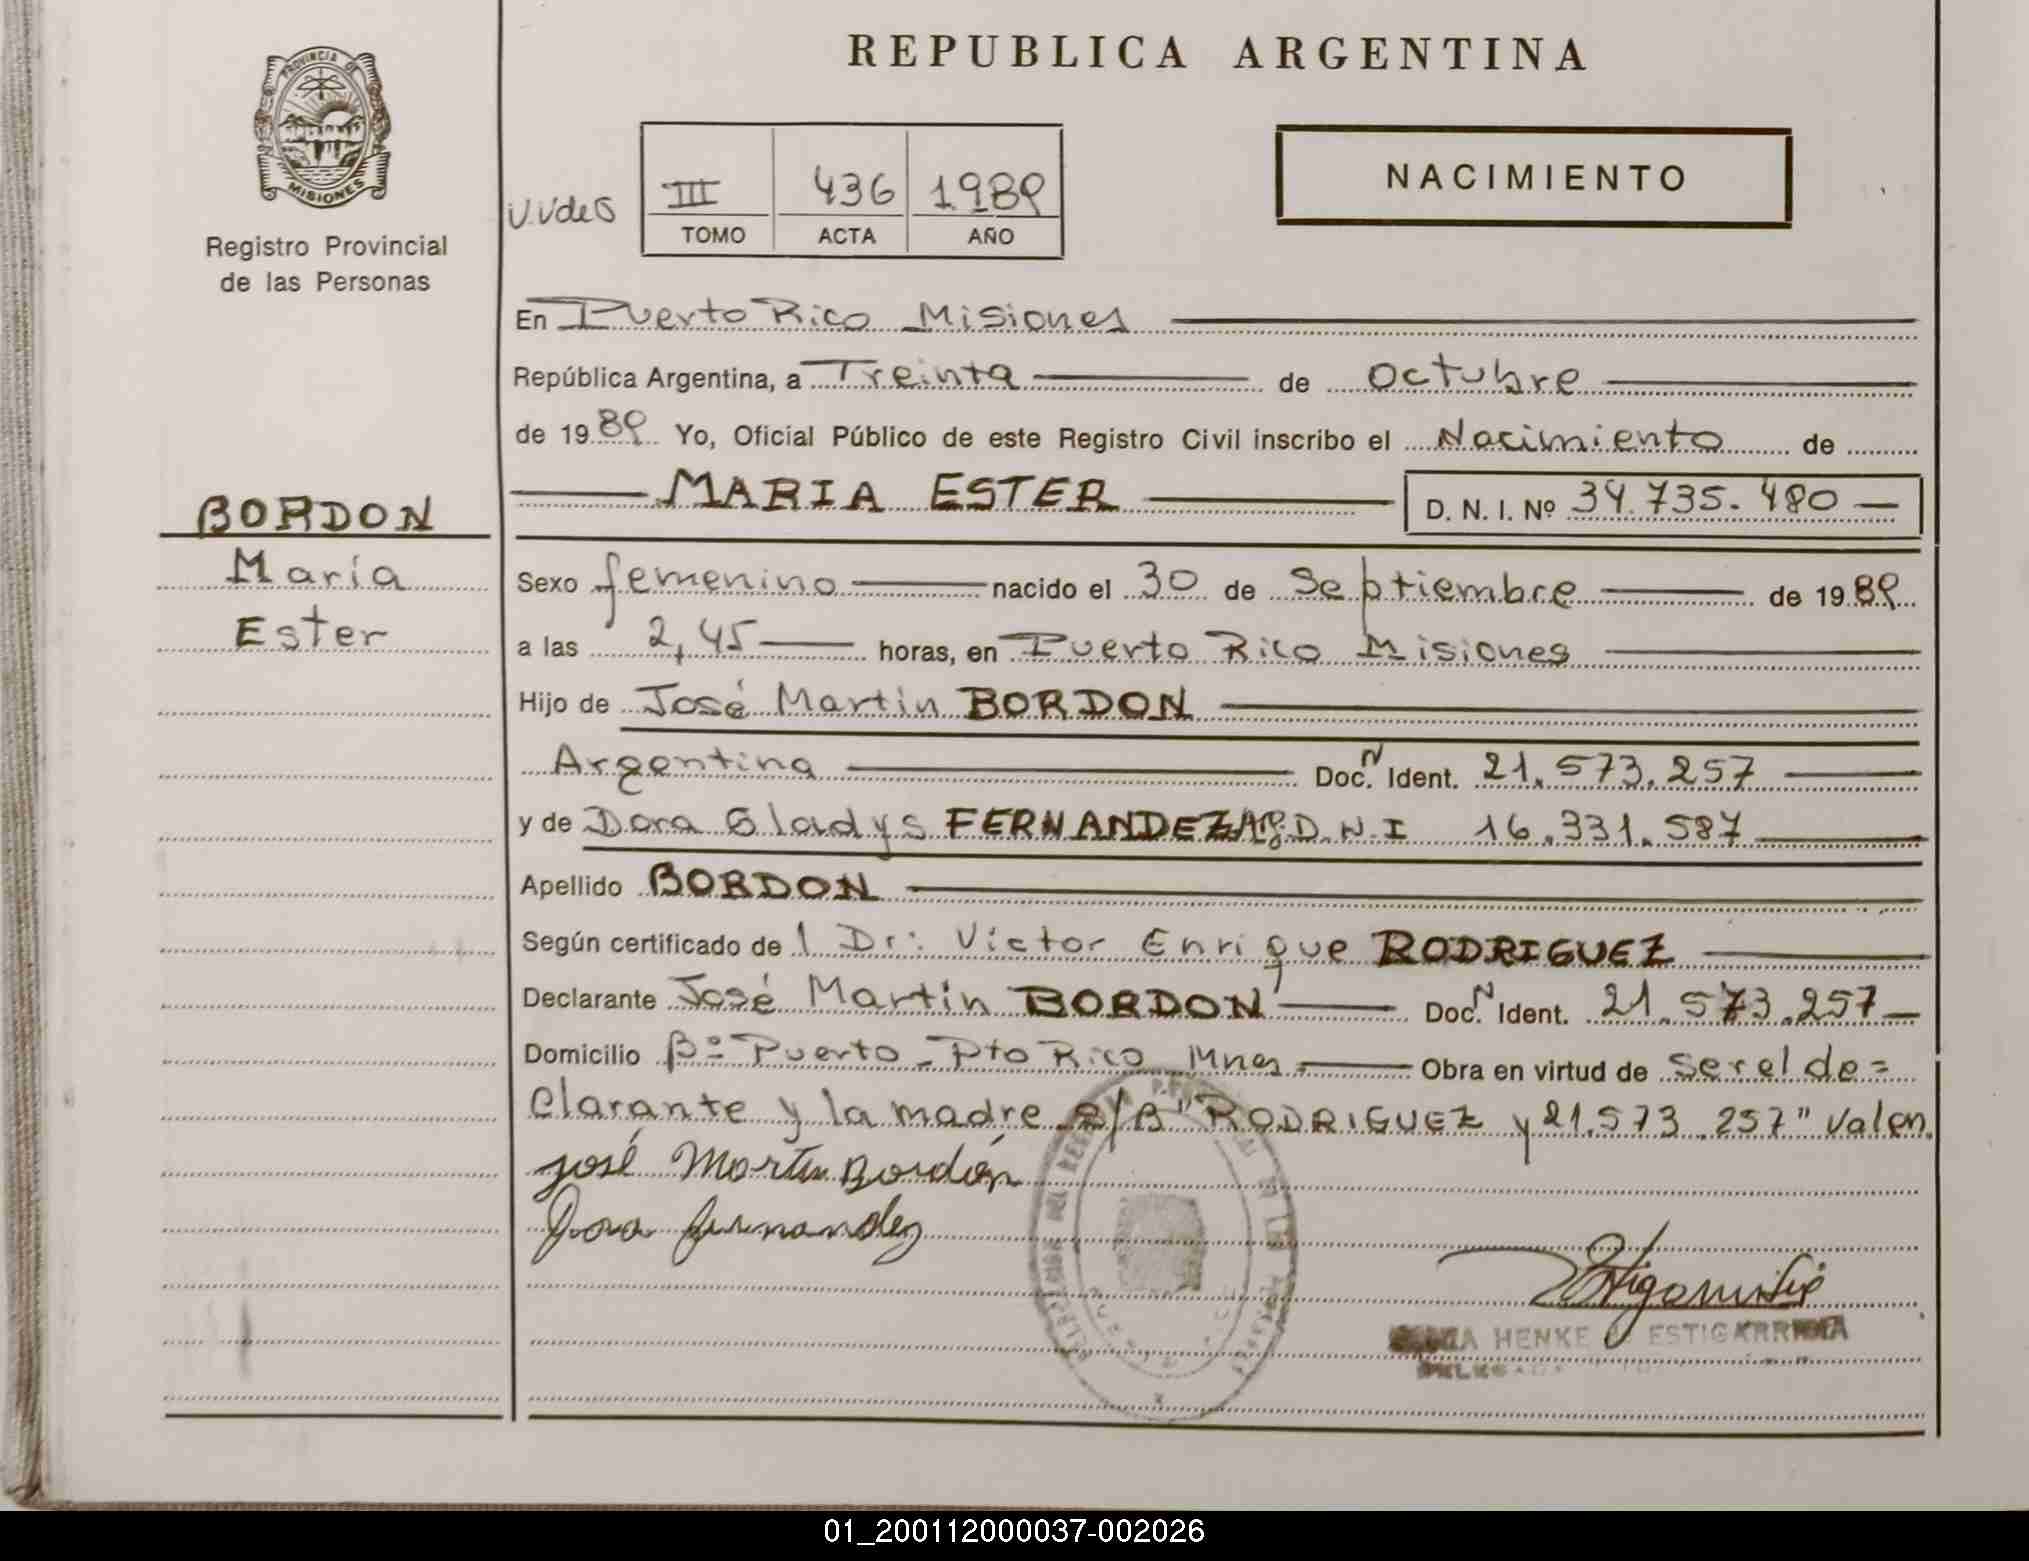 REPUBLICA ARGENTINA
PROVINCIA DE
MISIONES
Registro Provincial
de las Personas
NACIMIENTO
III 436 1989
TOMO ACTA AÑO
En Puerto Rico Misiones
República Argentina, a Treinta de octubre
de 1989 Yo, Oficial Público de este Registro Civil inscribo el Nacimiento de
BORDON
María
Ester
MARIA ESTER D. N. I. Nº 34.735.480
Sexo femenino nacido el 30 de Septiembre de 1989
a las 2,45 horas, en Puerto Rico Misiones
Hijo de José Martín BORDON
Argentina Doc. N Ident. 21.573.257
y de Dora Gladys FERNANDEZ Arg. D.N.I 16.331.587
Apellido BORDON
Según certificado de l Dr: Victor Enrique RODRIGUEZ
Declarante José Martín BORDON Doc. N Ident. 21.573.257
Domicilio Bº Puerto - Pto Rico Mnes Obra en virtud de ser el de=
clarante y la madre. S/B "RODRIGUEZ y 21.573.257" Valen.
José Martín Bordón
Dora Fernandez
HENKE ESTIGARRIBIA
01_200112000037-002026